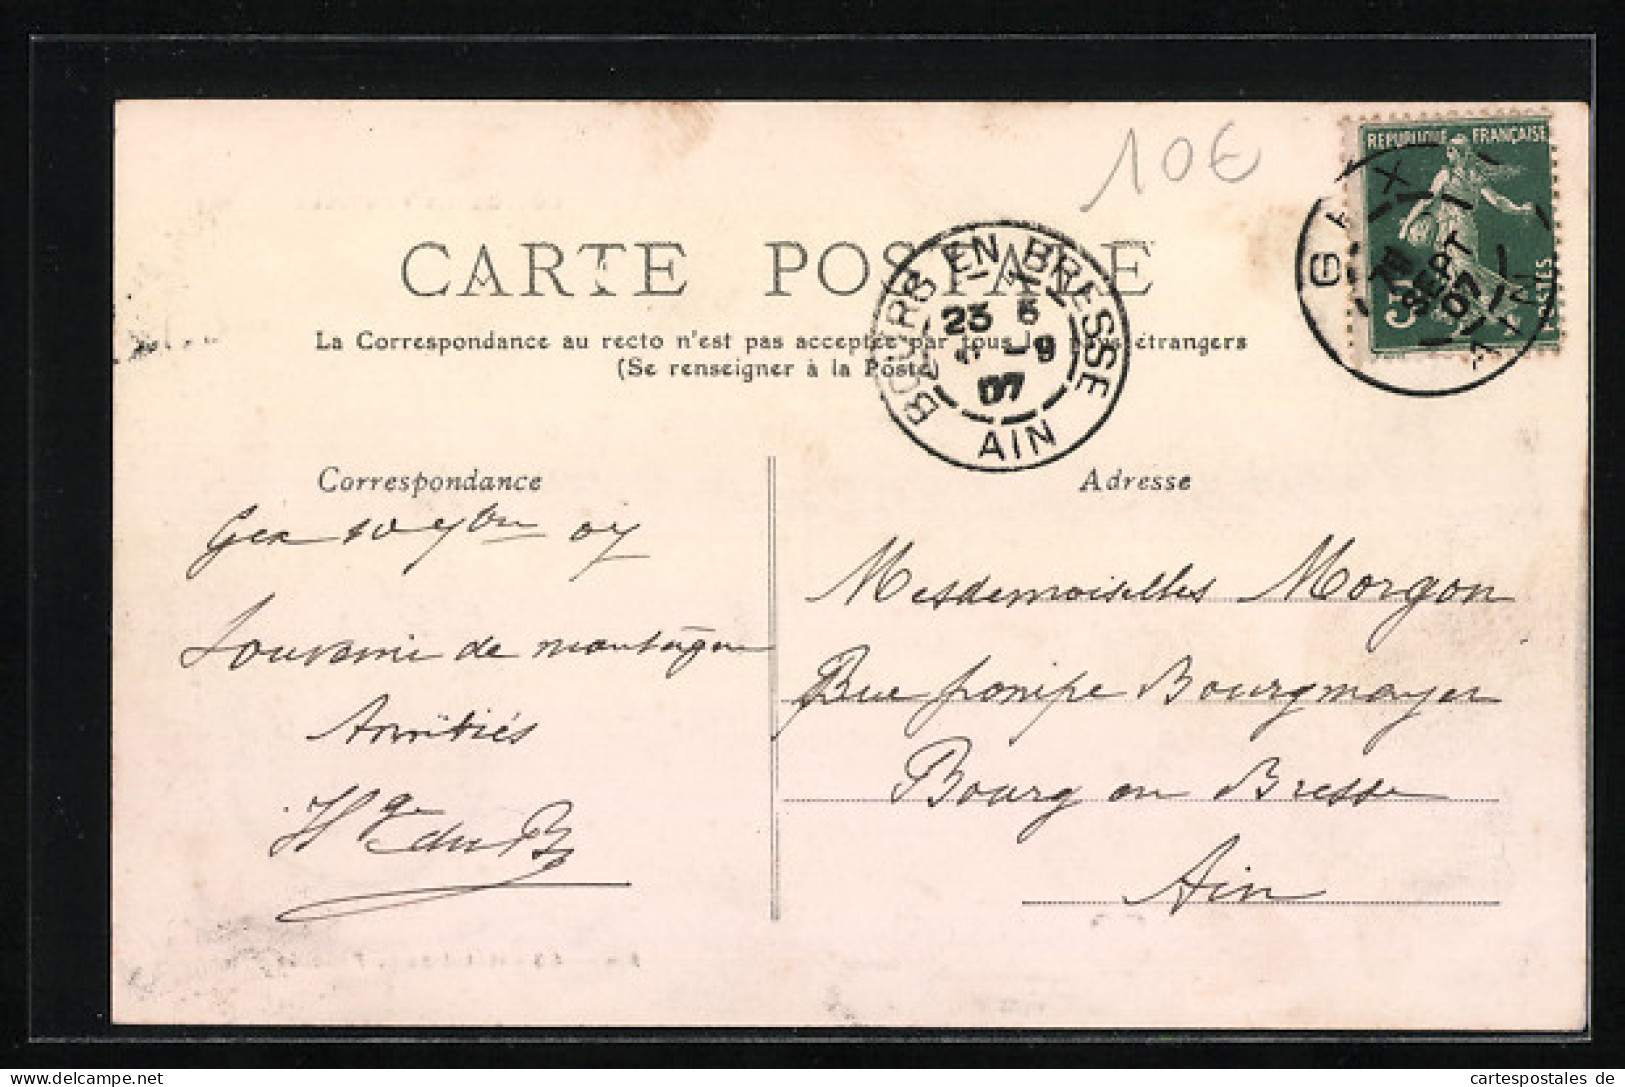 10€
REPUBLIQUE FRANÇAISE
POSTES
5
GEX
SEPT
07
AIN
CARTE POSTALE
BOURG EN BRESSE
23 5
-9
07
AIN
La Correspondance au recto n'est pas acceptée par tous les pays étrangers
(Se renseigner à la Poste)
Correspondance
Adresse
Gex 10 7bre 07
Souvenir de montagne
Amitiés
Hge du B
Mesdemoiselles Morgon
Rue ponipe Bourgmayer
Bourg en Bresse
Ain
cartespostales de